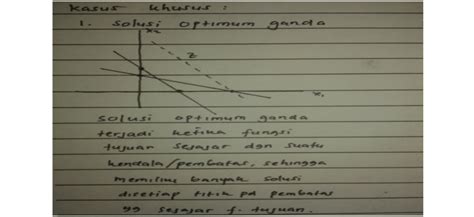 Kasus khusus :
1. Solusi optimum ganda
x₂
z
x₁
solusi optimum ganda
terjadi ketika fungsi
tujuan sejajar dgn suatu
kendala/pembatas, sehingga
memiliki banyak solusi
disetiap titik pd pembatas
yg sejajar f. tujuan.